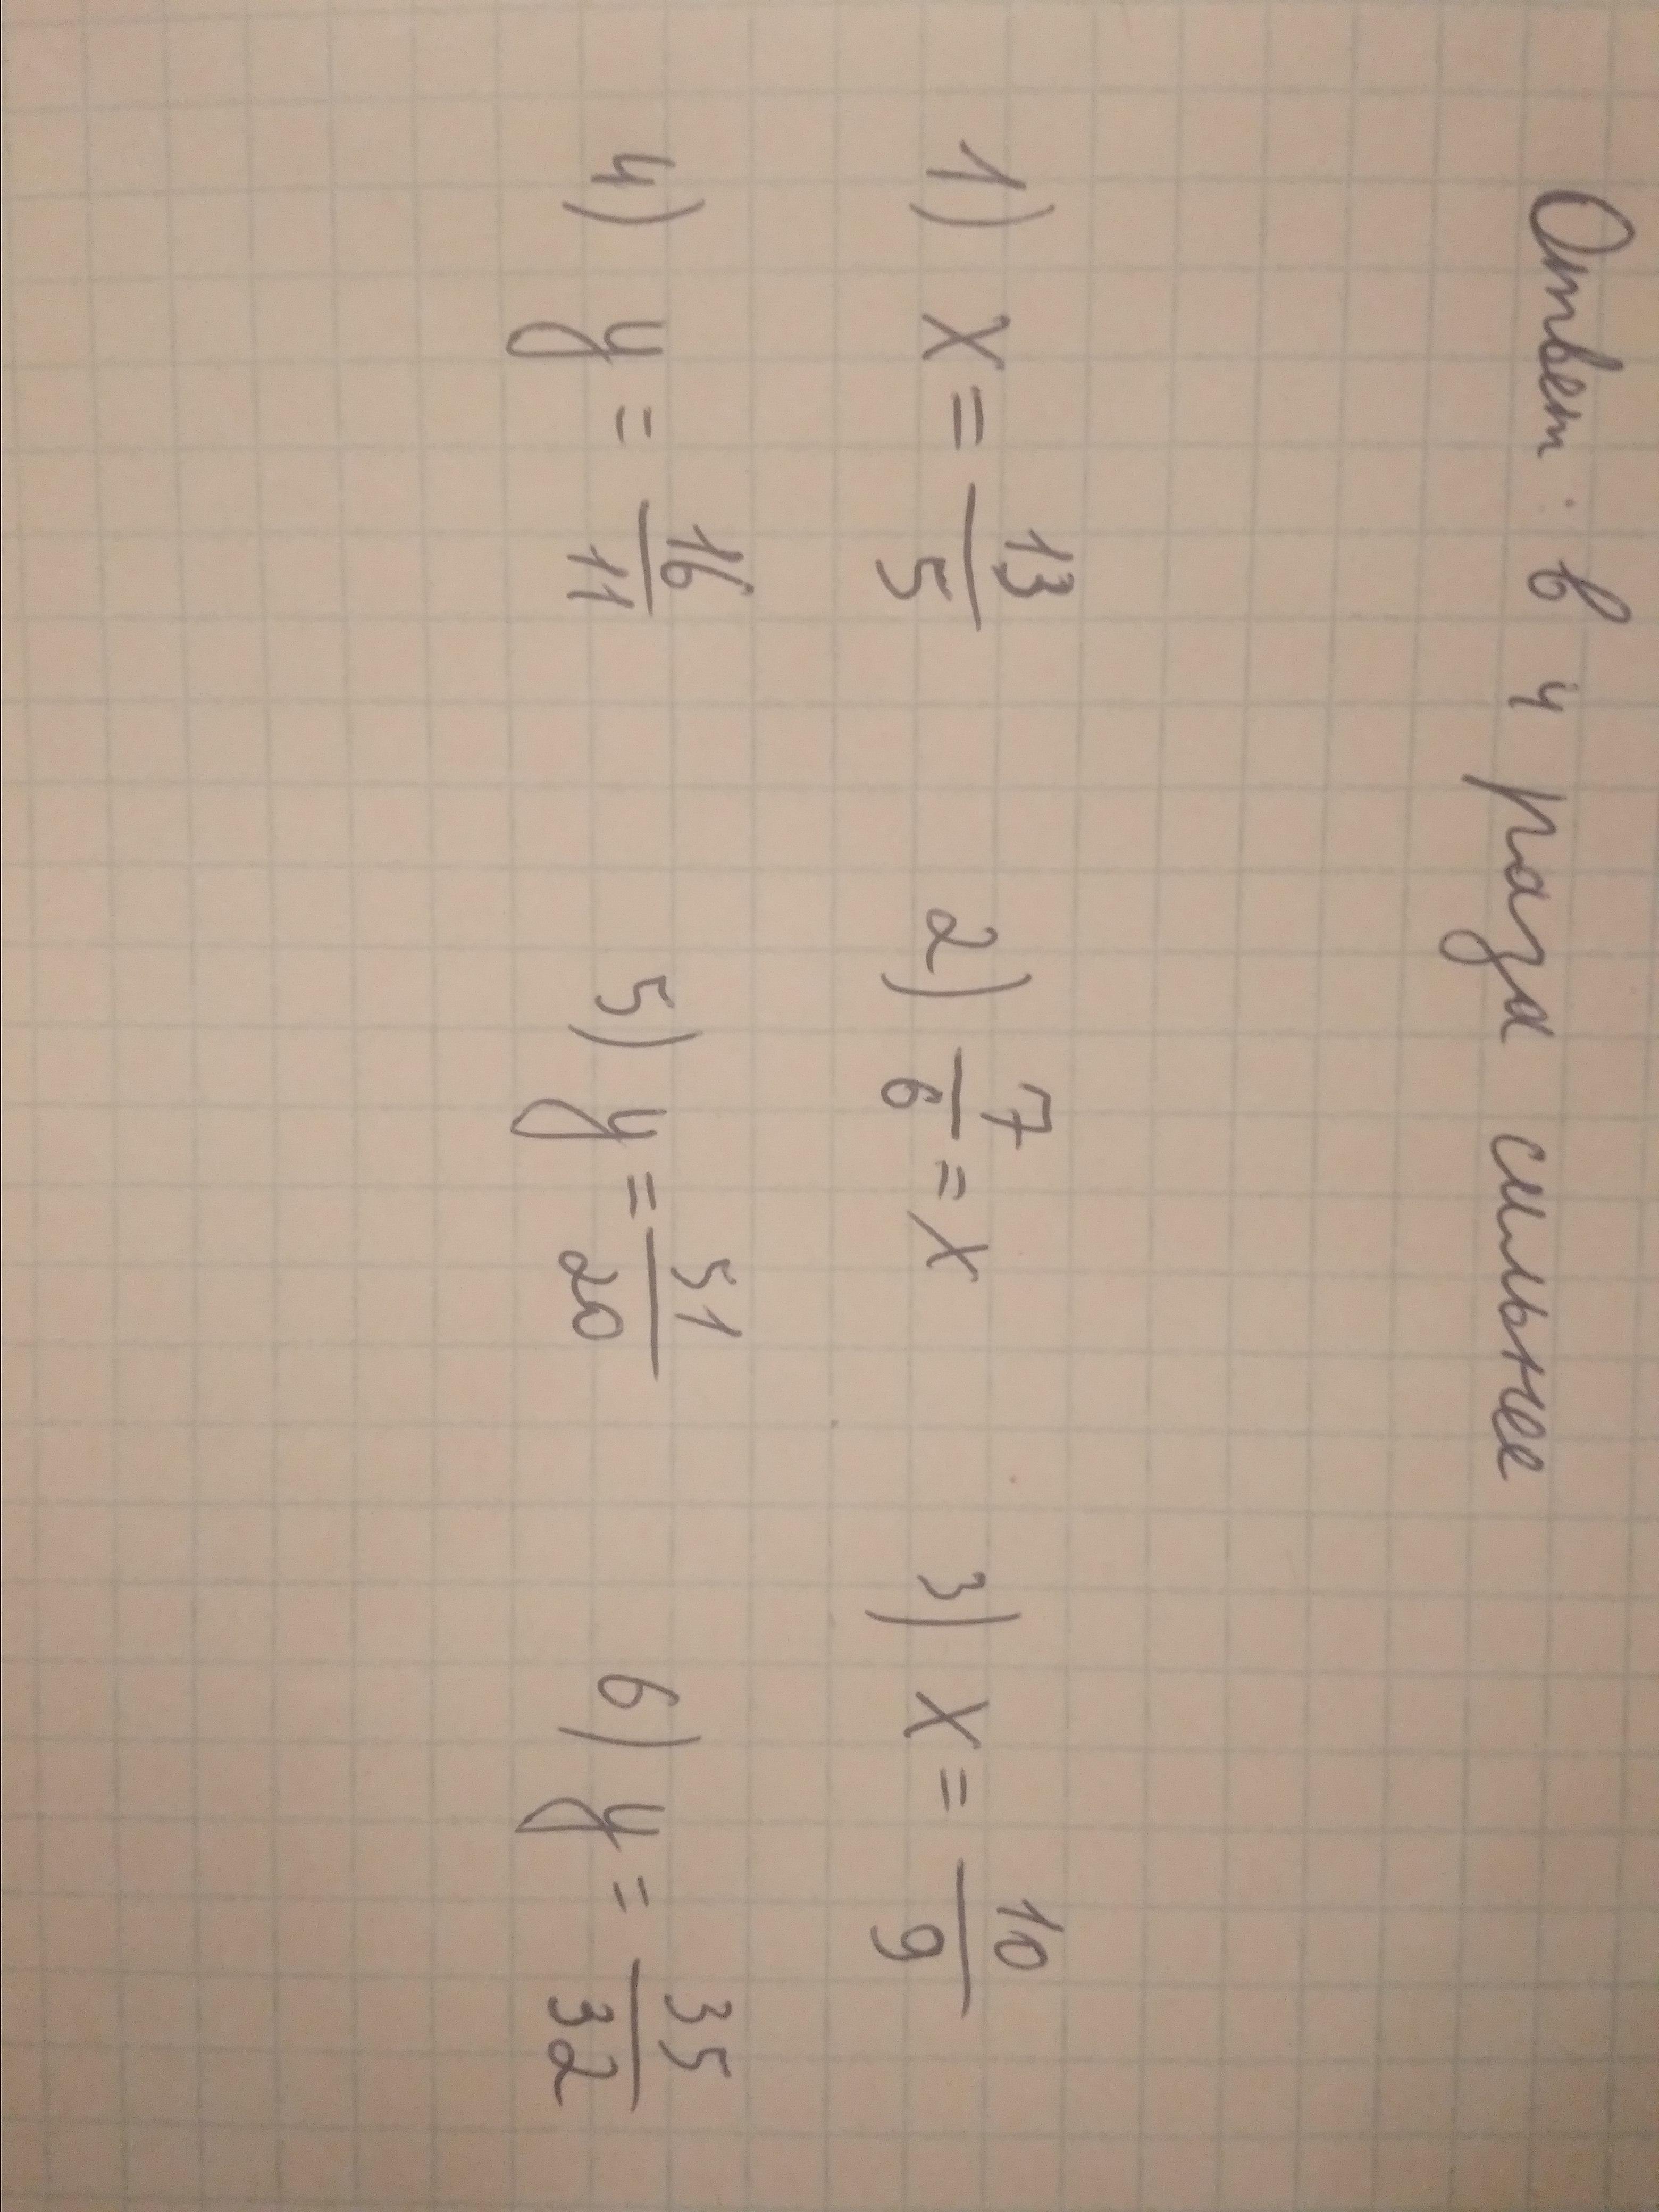 Ответ: в 4 раза сильнее
1) x = 13/5 2) 7/6 = x 3) x = 10/9
4) y = 16/11 5) y = 51/20 6) y = 35/32